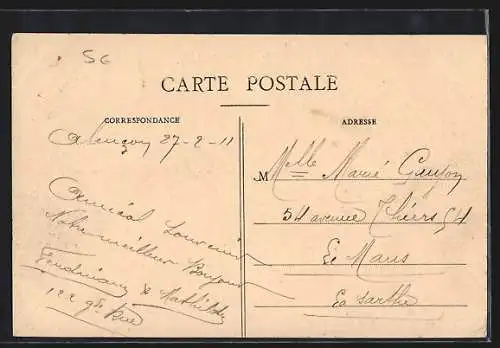 56
CARTE POSTALE
CORRESPONDANCE
ADRESSE
Alençon 27-2-11
M Mlle Marie
54 avenue Thiers 54
Le Mans
La Sarthe
Amical Souvenir
Notre meilleur Bonjour
Ferdinand & Mathilde
122 gde Rue